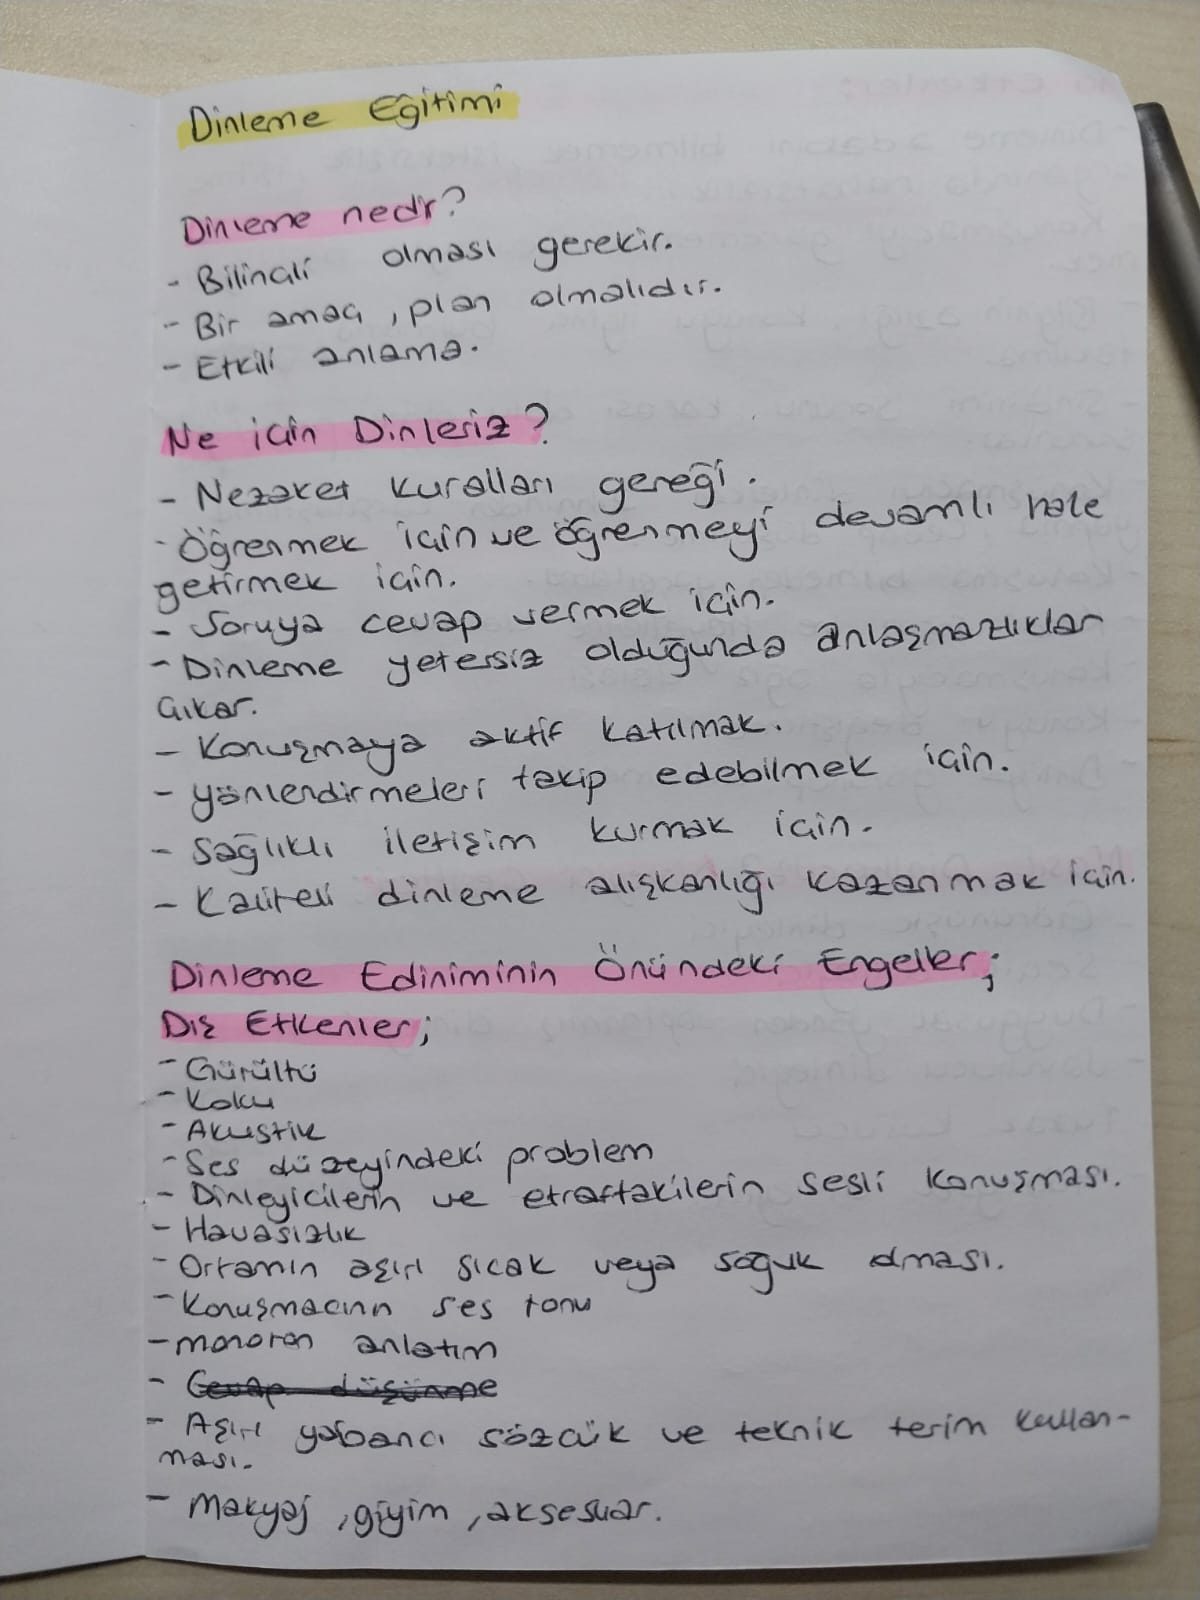 Dinleme Eğitimi
Dinleme nedir?
- Bilinçli olması gerekir.
- Bir amaç, plan olmalıdır.
- Etkili anlama.
Ne için Dinleriz?
- Nezaket kuralları gereği.
- Öğrenmek için ve öğrenmeyi devamlı hale
getirmek için.
- Soruya cevap vermek için.
- Dinleme yetersiz olduğunda anlaşmazlıklar
çıkar.
- Konuşmaya aktif katılmak.
- yönlendirmeleri takip edebilmek için.
- Sağlıklı iletişim kurmak için.
- Kaliteli dinleme alışkanlığı kazanmak için.
Dinleme Ediniminin Önündeki Engeller;
Dış Etkenler;
- Gürültü
- Koku
- Akustik
- Ses düzeyindeki problem
- Dinleyicilerin ve etraftakilerin sesli konuşması.
- Havasızlık
- Ortamın aşırı sıcak veya soğuk olması.
- Konuşmacının ses tonu
- monoton anlatım
- Cevap düşünme
- Aşırı yabancı sözcük ve teknik terim kullan-
ması.
- Makyaj, giyim, aksesuar.